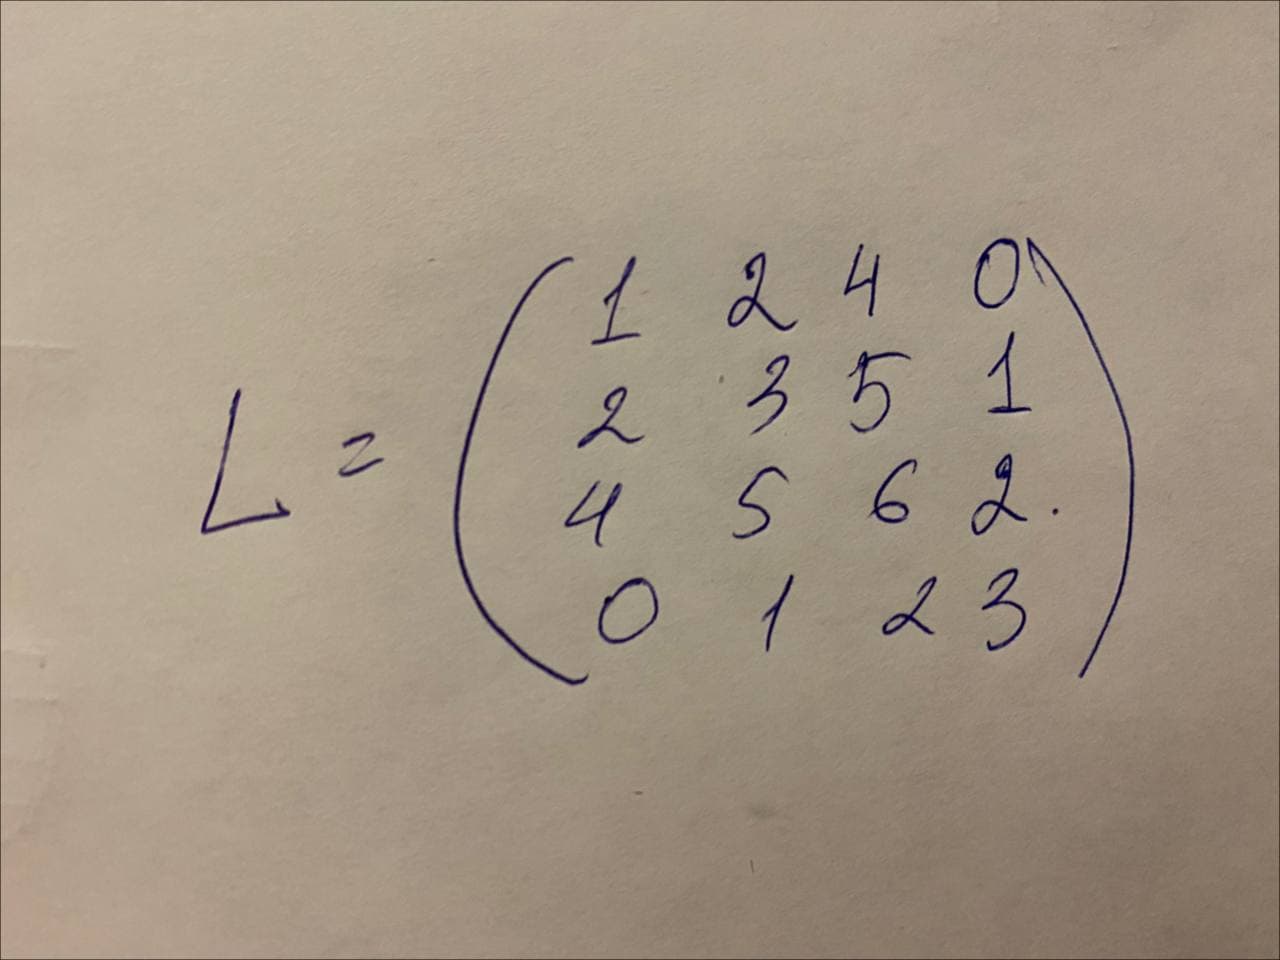 L = ( 1 2 4 0
2 3 5 1
4 5 6 2.
0 1 2 3 )